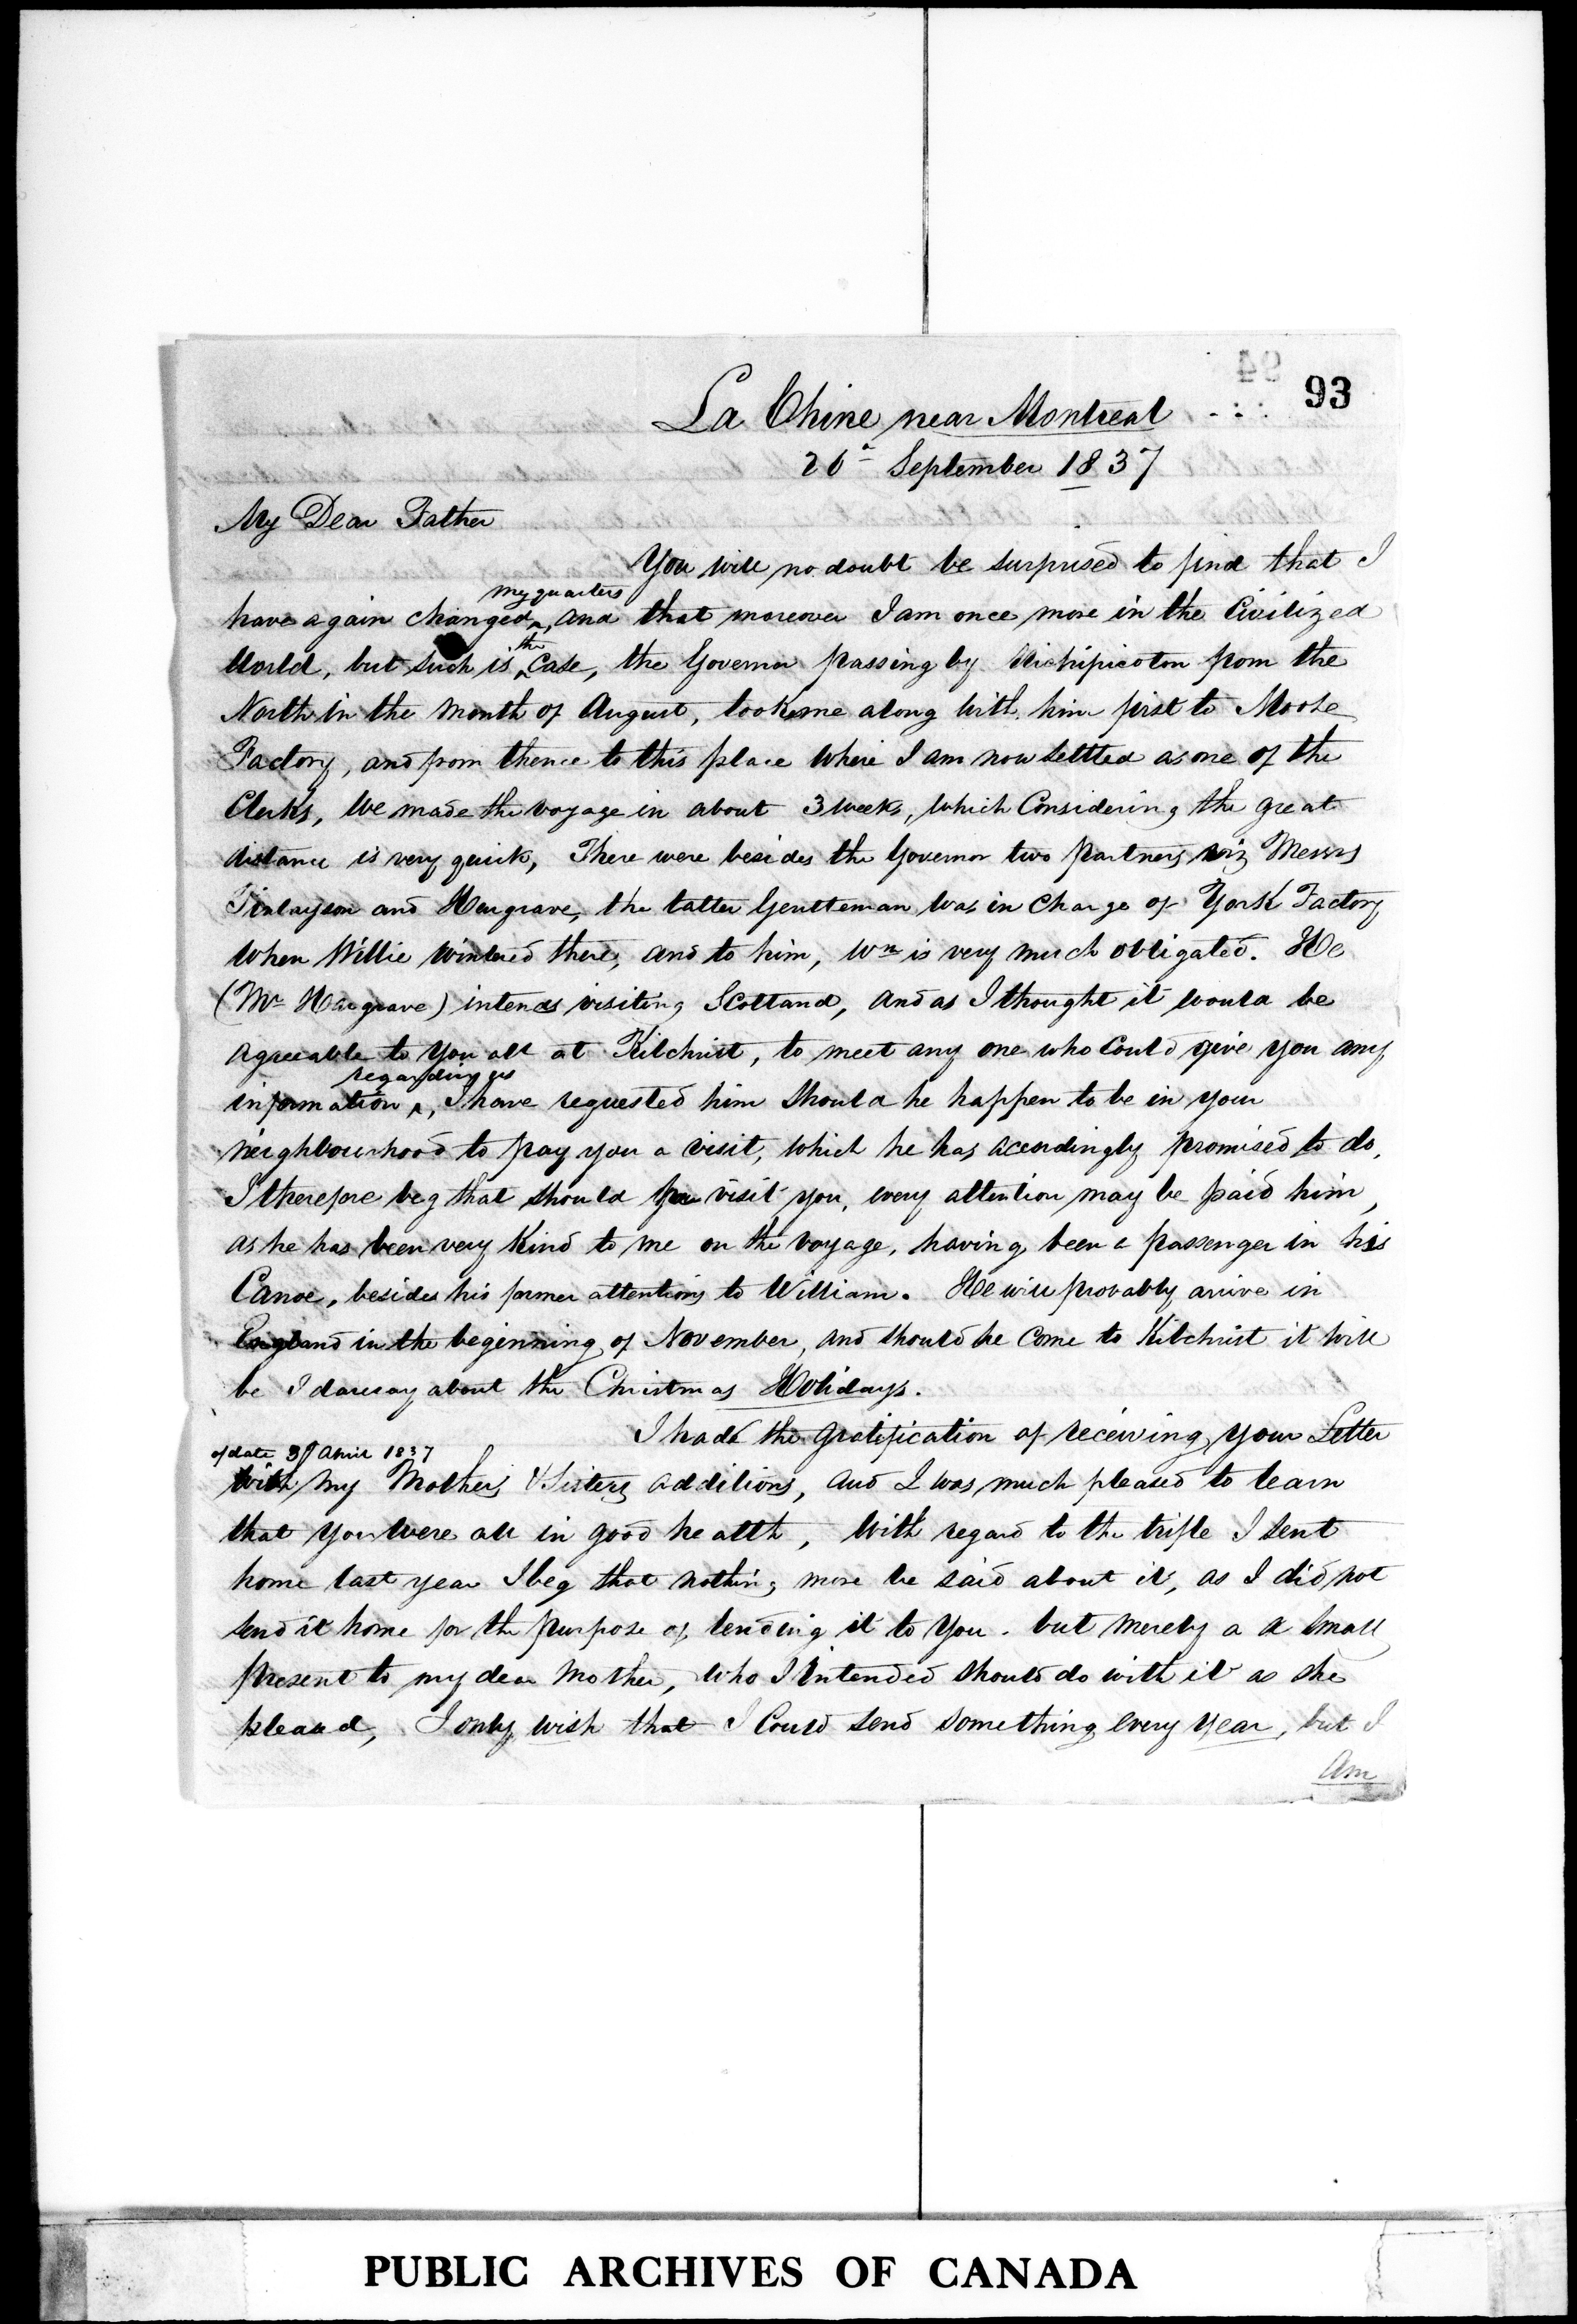 93
La Chine near Montreal
26th September 1837
My Dear Father
You will no doubt be surprised to find that I
my quarters
have again changed ^, and that moreover I am once more in the Civilized
the
World, but such is ^ Case, the Governor passing by Michipicoton from the
North in the Month of August, took me along with him first to Moose
Factory, and from thence to this place where I am now settled as one of the
Clerks, We made the voyage in about 3 weeks, which Considering the great
distance is very quick, There were besides the Governor two Partners viz Messrs
Finlayson and Hargrave, the latter Gentleman was in Charge of York Factory
when Willie wintered there, and to him, Wm is very much obligated. He
(Mr Hargrave) intends visiting Scotland, and as I thought it would be
agreeable to you all at Kilchrist, to meet any one who could give you any
regarding us
information ^, I have requested him should he happen to be in your
neighbourhood to pay you a visit, which he has accordingly promised to do,
I therefore beg that should he visit you, every attention may be paid him,
as he has been very kind to me on the voyage, having been a passenger in his
Canoe, besides his former attentions to William. He will probably arrive in
England in the beginning of November, and should he come to Kilchrist it will
be I daresay about the Christmas Holidays.
I had the gratification of receiving your Letter
of date April 1837
with my Mothers & Sisters additions, and I was much pleased to learn
that you were all in good health, With regard to the trifle I sent
home last year I beg that nothing more be said about it, as I did not
send it home for the purpose of lending it to you. but merely a a small
present to my dear Mother, who I intended should do with it as she
pleased, I only wish that I Could send something every year, but I
Am
PUBLIC ARCHIVES OF CANADA